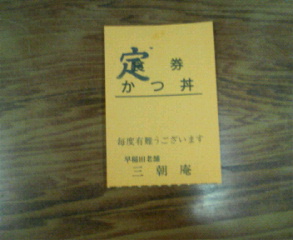 定 券
かつ丼
毎度有難うございます
早稲田老舗
三朝庵